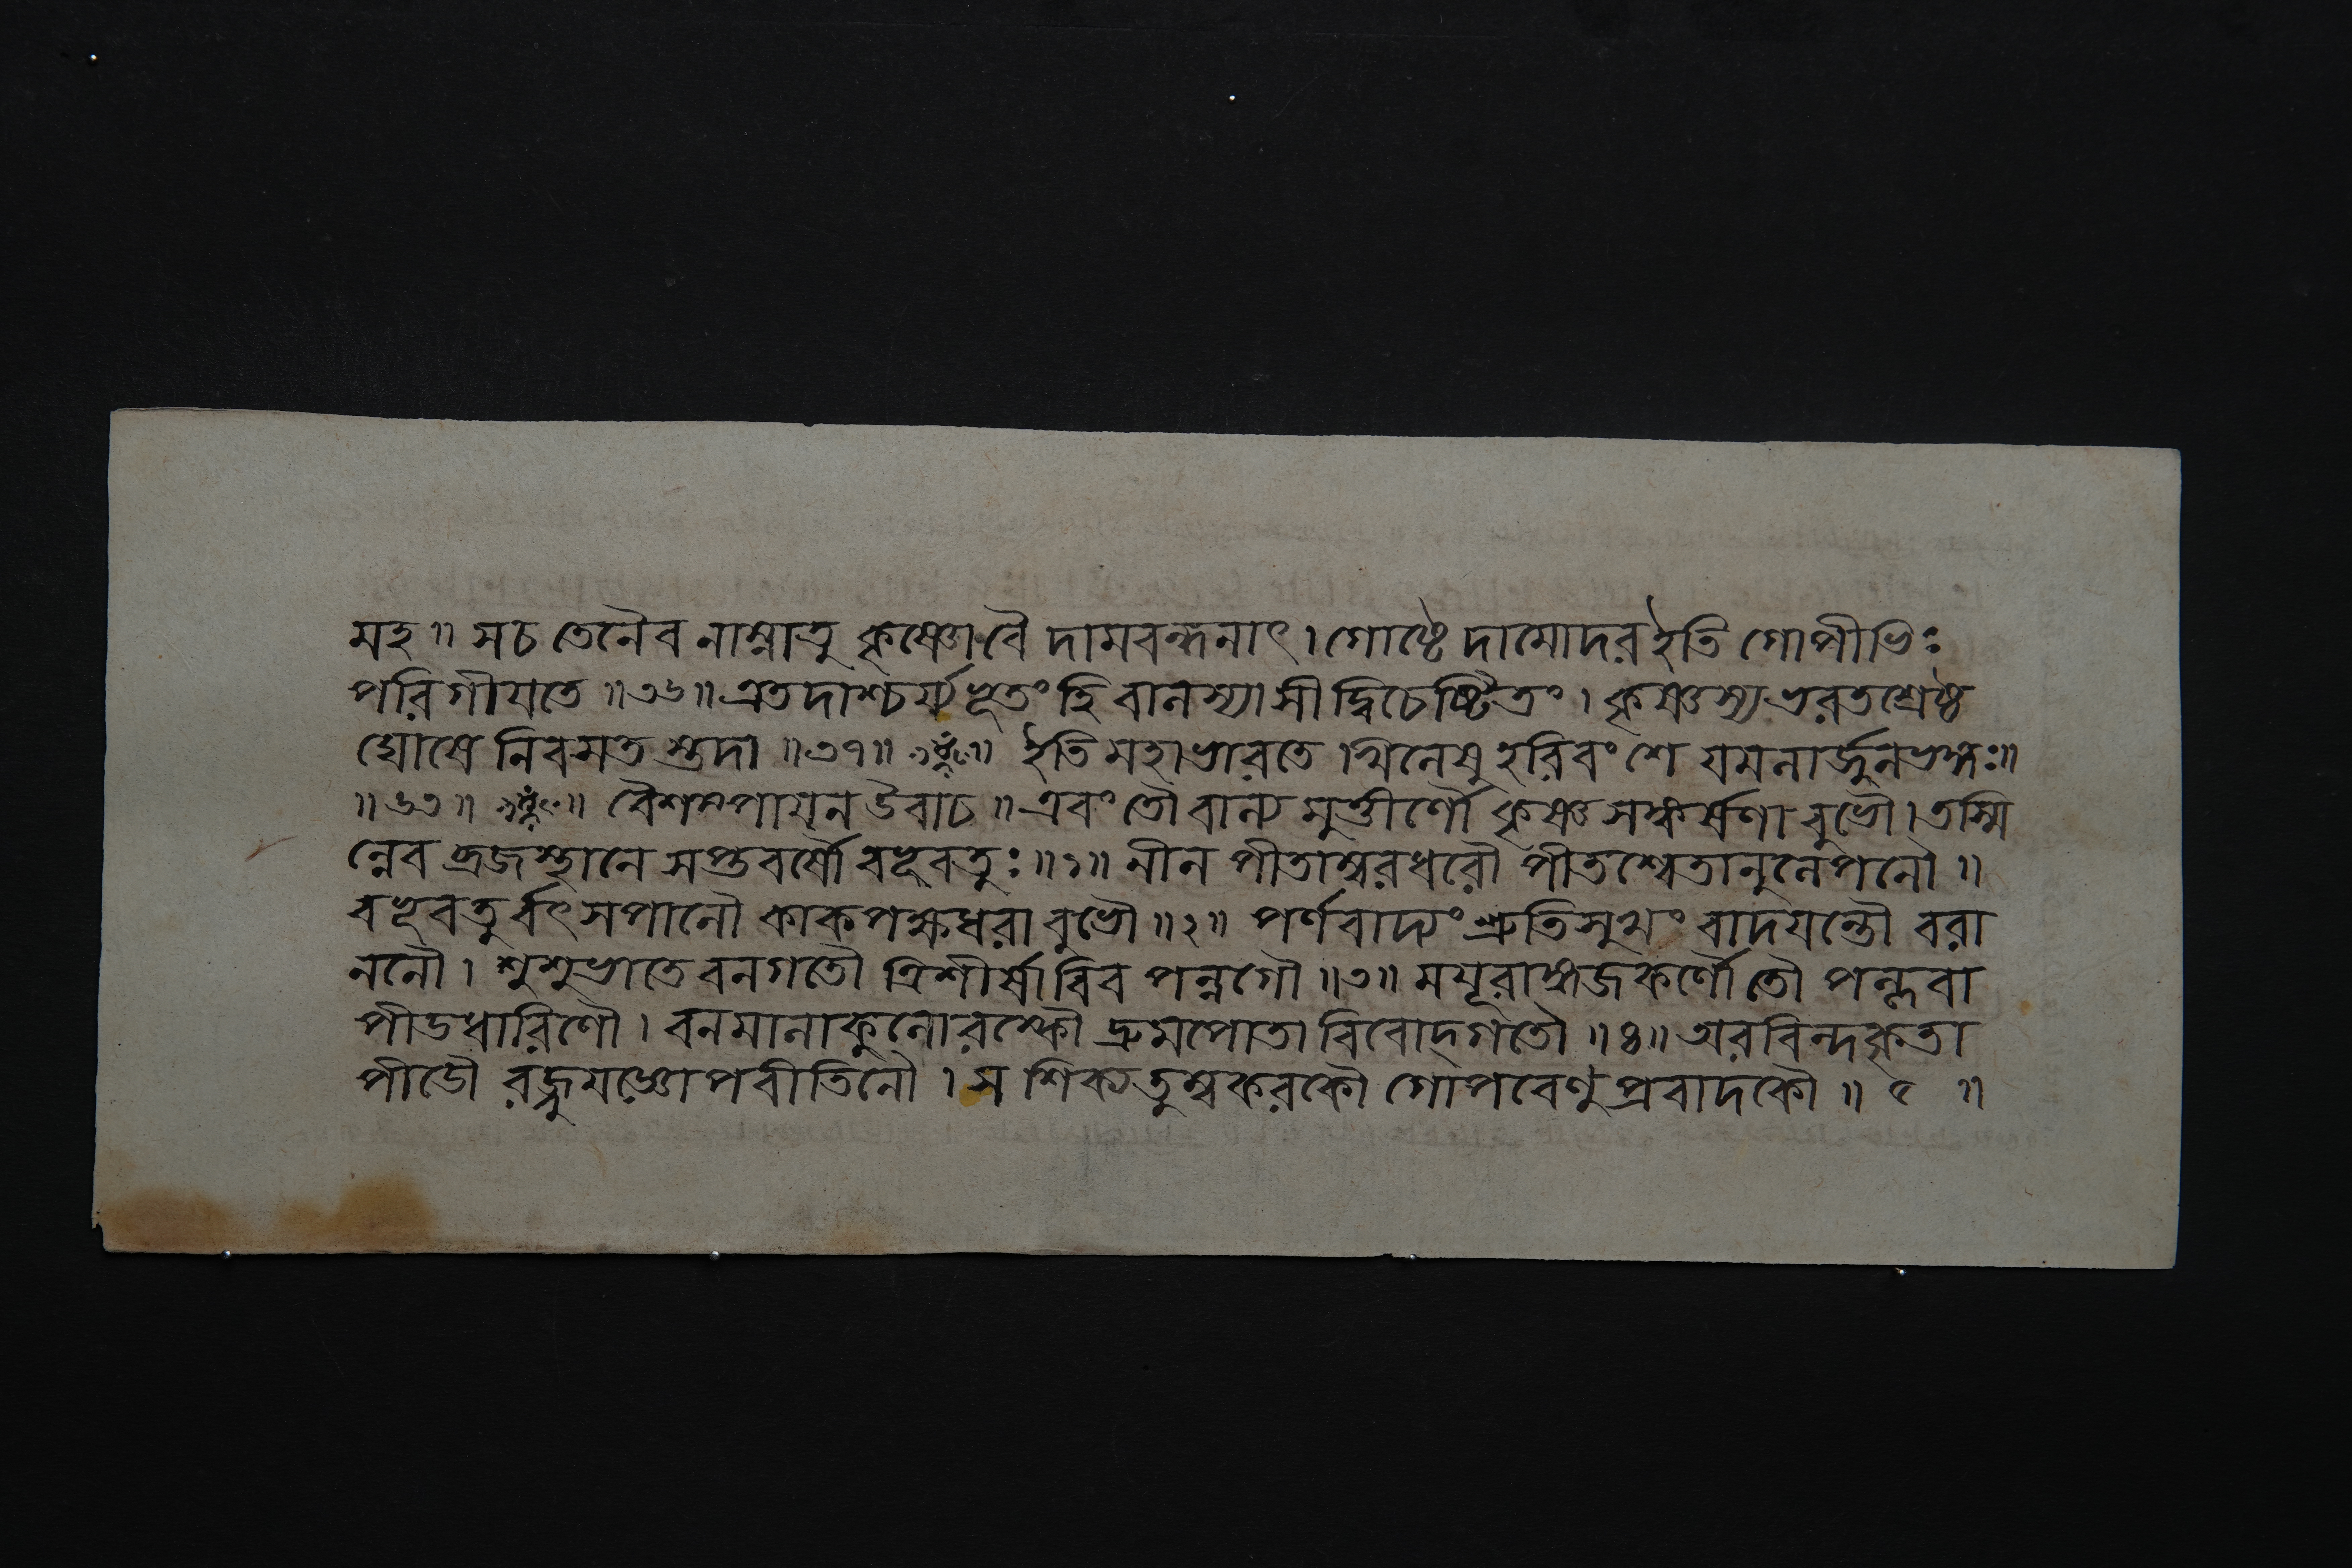 মহ॥ সচ তেনৈব নাম্নাতু কৃষ্ণোবৈ দামবন্ধনাৎ। গোষ্ঠে দামোদর ইতি গোপীভিঃ
পরিগীযতে॥৩৬॥ এতদাশ্চর্য্যভূতং হি বালস্যাসীদ্বিচেষ্টিতং। কৃষ্ণস্য ভরতশ্রেষ্ঠ
ঘোষে নিবসত স্তদা॥৩৭॥ ইতি মহাভারতে খিলেষু হরিবংশে যমলার্জুনভঙ্গঃ॥
॥৬৩॥ বৈশম্পাযন উবাচ॥ এবং তৌ বাল্য মুত্তীর্ণৌ কৃষ্ণ সঙ্কর্ষণা বুভৌ। তস্মি
ন্নেব ব্রজস্থানে সপ্তবর্ষৌ বভূবতুঃ॥১॥ নীল পীতাম্বরধরৌ পীতশ্বেতানুলেপনৌ॥
বভূবতু র্বৎসপালৌ কাকপক্ষধরা বুভৌ॥২॥ পর্ণবাদ্যং শ্রুতিসুখং বাদযন্তৌ বরা
ননৌ। শুশুভাতে বনগতৌ ত্রিশীর্ষাবিব পন্নগৌ॥৩॥ মযূরাঙ্গজকর্ণৌ তৌ পল্লবা
পীডধারিণৌ। বনমালাকুলোরস্কৌ দ্রুমপোতা বিবোদ্গতৌ॥৪॥ অরবিন্দকৃতা
পীডৌ রজ্জুযজ্ঞোপবীতিনৌ। স শিক্যতুম্বকরকৌ গোপবেণুপ্রবাদকৌ॥ ৫ ॥